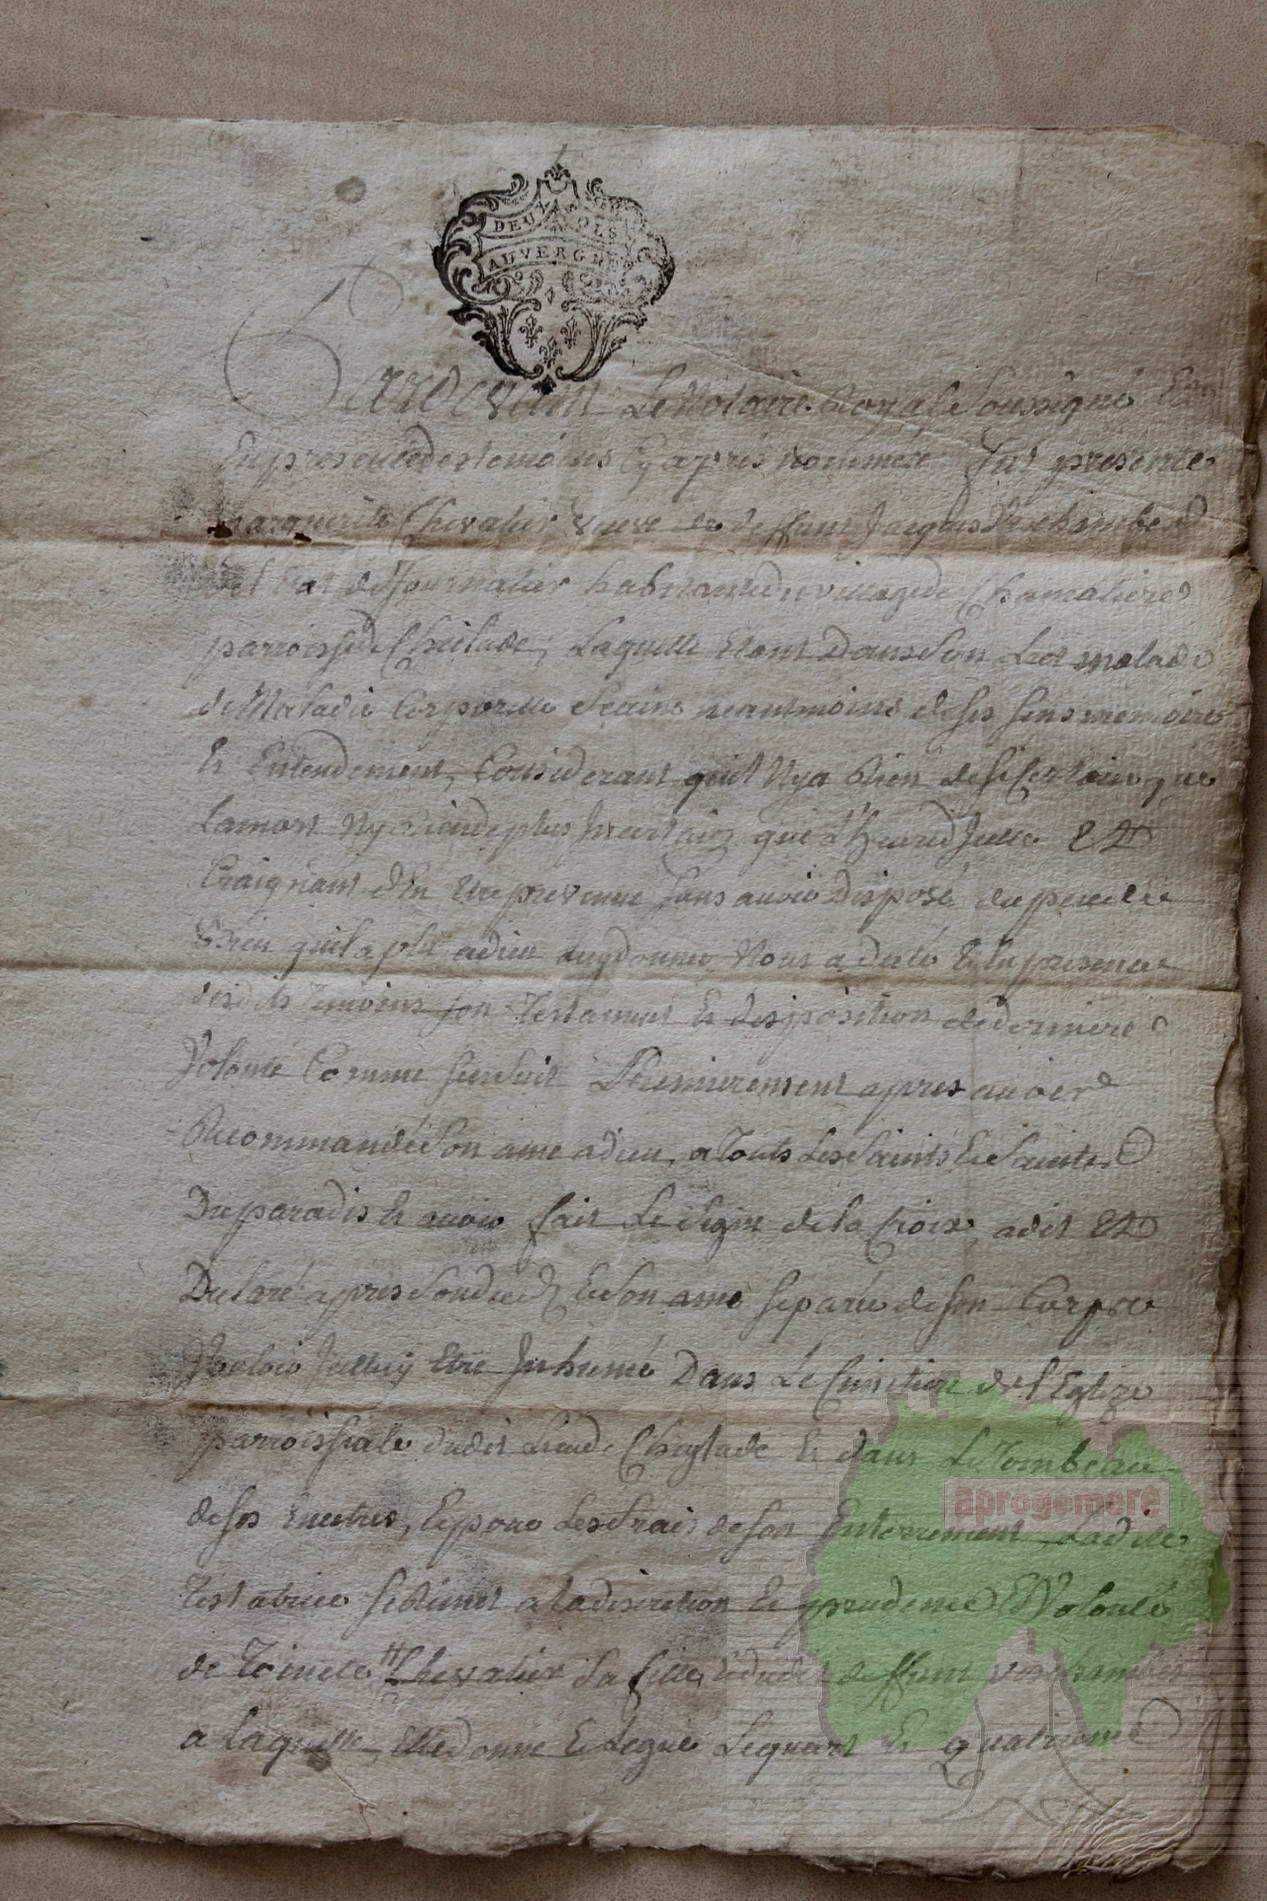 DEUX SOLS
AUVERGNE
Pardevant Le Notaire Royal Soussigné
En presence des temoins Cy apres nommés fut presente
Marguerite Chevalier veuve de deffunt Jacques
de journalier habitante du village de Chamalieres
parroisse de Cheilade, Laquelle Etant Dans Son Lict malade
de Maladie Corporelle Saine neantmoins de ses sens memoire
Et Entendement, Considerant quil Nya Rien de si Certain que
La mort Ny Rien de plus Incertain que L'heure d'Icelle Et
Craignant d'En Etre prevenue sans avoir Disposé du peu de
Bien quil a plu a dieu luy donner Nous a dicté En presence
desdits Temoins son Testament Et disposition de derniere
Volonté Comme sensuit Premierement apres avoir
Recommandé Son ame a dieu, a Touts Les Saints Et Saintes
Du paradis Et avoir fait Le Signe de la Croix, a dit Et
Declaré apres Son deces Et Son ame separée de son Corps
Vouloir Icelluy Etre Inhumé Dans Le Cimetiere de l'Eglize
parroissiale dudit Lieu de Cheylade Et dans Le Tombeau
de ses encetres, Et pour Les frais de son Enterrement Ladite
Testatrice se Remet a la discretion Et prudence Et Volonté
de Toinete Chevalier Sa fille dudit deffunt
a laquelle Elle donne Et Legue Le quart Et quatrieme
aprogemere